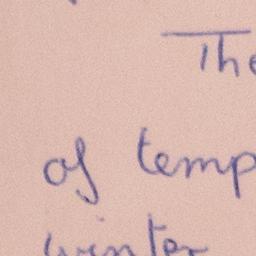 The
of temp
winter